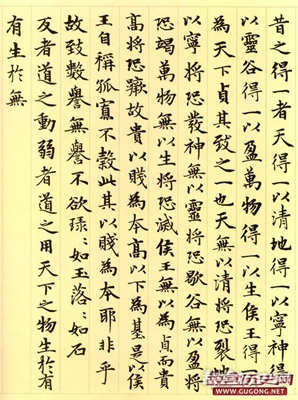 昔之得一者天得一以清地得一以寧神得
以靈谷得一以盈萬物得一以生侯王得
為天下貞其致之一也天無以清將恐裂地
以寧將恐發神無以靈將恐歇谷無以盈將
恐竭萬物無以生將恐滅侯王無以為貞而貴
高將恐蹶故貴以賤為本高以下為基是以侯
王自稱孤寡不穀此其以賤為本耶非乎
故致數譽無譽不欲琭〻如玉落〻如石
反者道之動弱者道之用天下之物生於有
有生於無